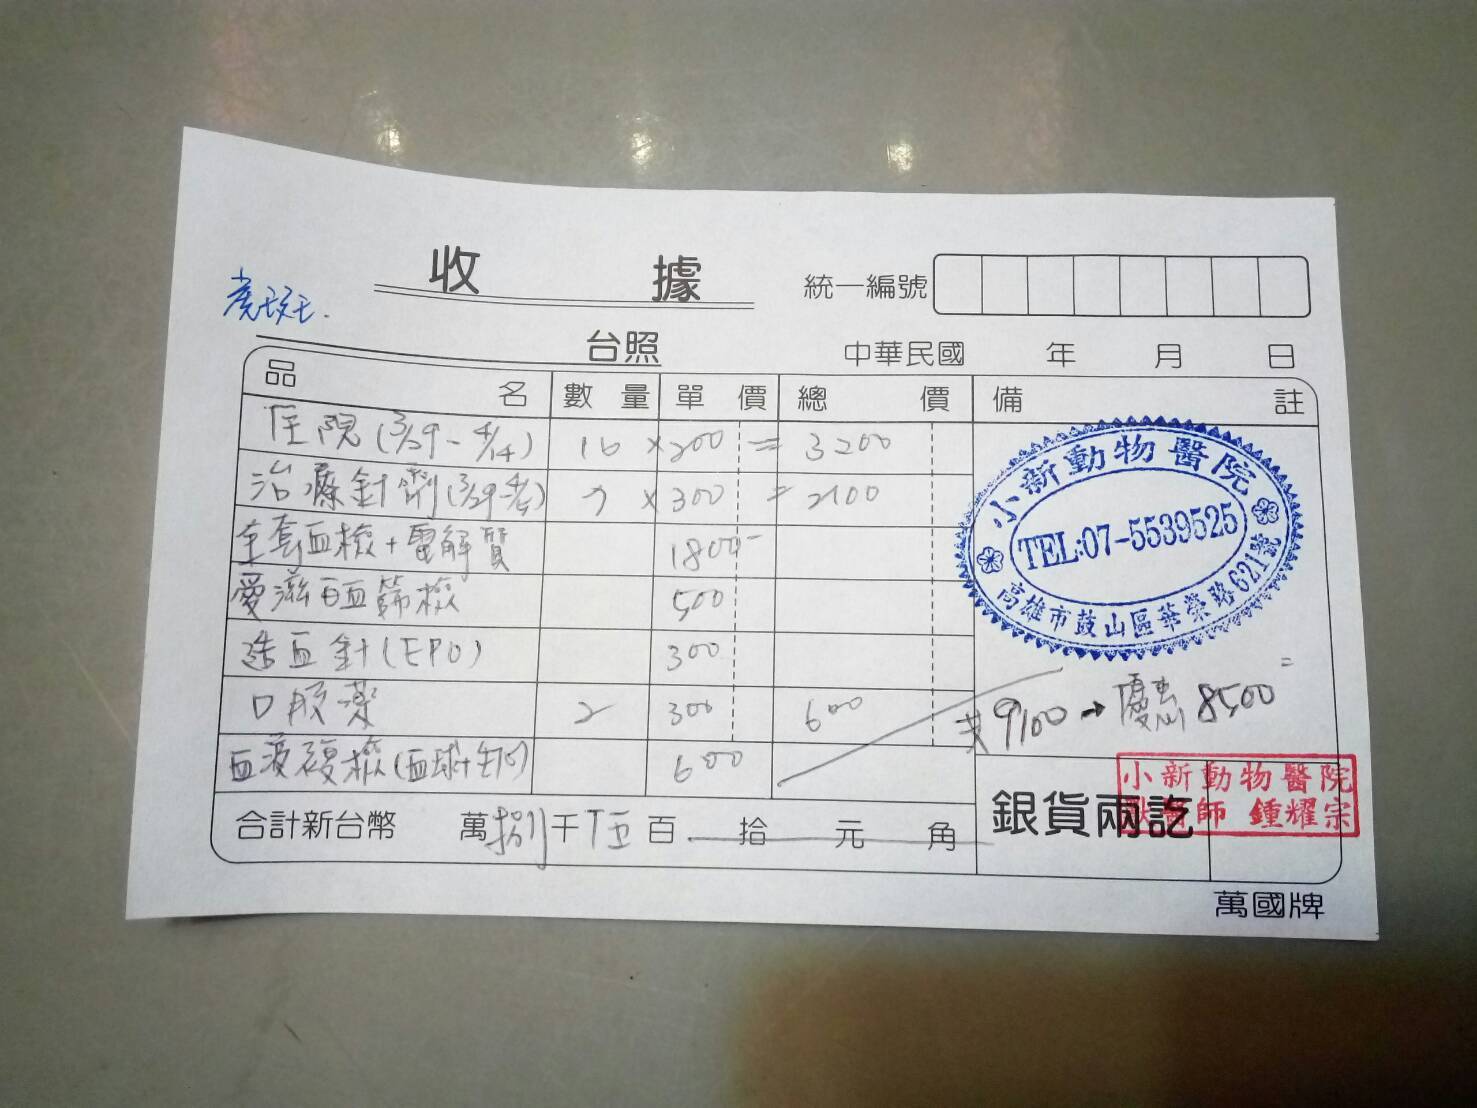 收據
統一編號
台照
中華民國 年 月 日
品名 數量 單價 總價 備註
住院(3/29-4/14) 16 × 200 = 3200
治療針劑(3/29-4/) 7 × 300 = 2100
全套血檢+電解質 1800-
愛滋白血篩檢 500
造血針(EPO) 300
口服藥 2 300 600
血液複檢(血球+) 600
小新動物醫院
TEL:07-5539525
高雄市鼓山區華榮路621號
共9100→優惠8500
合計新台幣 萬捌仟伍百 拾 元 角
銀貨兩訖
小新動物醫院
獸醫師 鍾耀宗
萬國牌